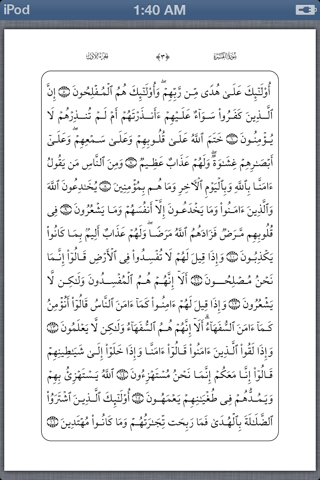 iPod 1:40 AM
سُورَةُ البَقَرَةِ ﴿٣﴾ الجُزْءُ الأَوَّلُ
أُوْلَٰٓئِكَ عَلَىٰ هُدًى مِّن رَّبِّهِمْ ۖ وَأُوْلَٰٓئِكَ هُمُ ٱلْمُفْلِحُونَ ۝٥ إِنَّ
ٱلَّذِينَ كَفَرُوا۟ سَوَآءٌ عَلَيْهِمْ ءَأَنذَرْتَهُمْ أَمْ لَمْ تُنذِرْهُمْ لَا
يُؤْمِنُونَ ۝٦ خَتَمَ ٱللَّهُ عَلَىٰ قُلُوبِهِمْ وَعَلَىٰ سَمْعِهِمْ ۖ وَعَلَىٰٓ
أَبْصَٰرِهِمْ غِشَٰوَةٌ ۖ وَلَهُمْ عَذَابٌ عَظِيمٌ ۝٧ وَمِنَ ٱلنَّاسِ مَن يَقُولُ
ءَامَنَّا بِٱللَّهِ وَبِٱلْيَوْمِ ٱلْءَاخِرِ وَمَا هُم بِمُؤْمِنِينَ ۝٨ يُخَٰدِعُونَ ٱللَّهَ
وَٱلَّذِينَ ءَامَنُوا۟ وَمَا يَخْدَعُونَ إِلَّآ أَنفُسَهُمْ وَمَا يَشْعُرُونَ ۝٩ فِى
قُلُوبِهِم مَّرَضٌ فَزَادَهُمُ ٱللَّهُ مَرَضًا ۖ وَلَهُمْ عَذَابٌ أَلِيمٌۢ بِمَا كَانُوا۟
يَكْذِبُونَ ۝١٠ وَإِذَا قِيلَ لَهُمْ لَا تُفْسِدُوا۟ فِى ٱلْأَرْضِ قَالُوٓا۟ إِنَّمَا
نَحْنُ مُصْلِحُونَ ۝١١ أَلَآ إِنَّهُمْ هُمُ ٱلْمُفْسِدُونَ وَلَٰكِن لَّا
يَشْعُرُونَ ۝١٢ وَإِذَا قِيلَ لَهُمْ ءَامِنُوا۟ كَمَآ ءَامَنَ ٱلنَّاسُ قَالُوٓا۟ أَنُؤْمِنُ
كَمَآ ءَامَنَ ٱلسُّفَهَآءُ ۗ أَلَآ إِنَّهُمْ هُمُ ٱلسُّفَهَآءُ وَلَٰكِن لَّا يَعْلَمُونَ ۝١٣
وَإِذَا لَقُوا۟ ٱلَّذِينَ ءَامَنُوا۟ قَالُوٓا۟ ءَامَنَّا وَإِذَا خَلَوْا۟ إِلَىٰ شَيَٰطِينِهِمْ
قَالُوٓا۟ إِنَّا مَعَكُمْ إِنَّمَا نَحْنُ مُسْتَهْزِءُونَ ۝١٤ ٱللَّهُ يَسْتَهْزِئُ بِهِمْ
وَيَمُدُّهُمْ فِى طُغْيَٰنِهِمْ يَعْمَهُونَ ۝١٥ أُوْلَٰٓئِكَ ٱلَّذِينَ ٱشْتَرَوُا۟
ٱلضَّلَٰلَةَ بِٱلْهُدَىٰ فَمَا رَبِحَت تِّجَٰرَتُهُمْ وَمَا كَانُوا۟ مُهْتَدِينَ ۝١٦